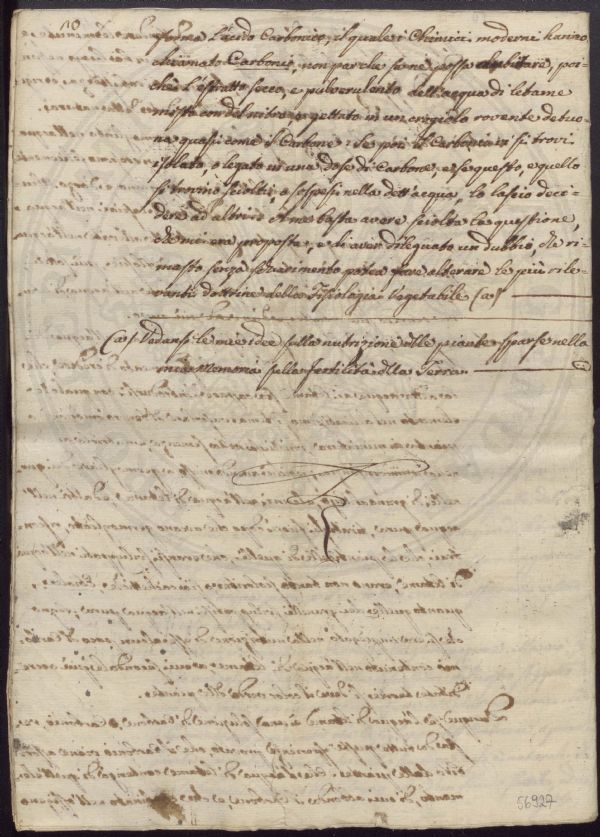 10
forma l'acido Carbonico, il quale i Chimici moderni hanno
chiamato Carbonio, non par che se ne possa dubitare, poi-
chè l'estratto secco, e pulverulento dell'acqua di letame
misto con del nitro, e gettato in un crogiolo rovente detuo-
na quasi come il Carbone. Se poi il Carbonio vi si trovi
isolato, o legato in una dose di Carbone, e se questo, e quello
si trovino sciolti, o sospesi nella dett'acqua, lo lascio deci-
dere ad altri. A me basta avere sciolta la questione,
che mi era proposta, e di aver dileguato un dubbio, che ri-
masto senza schiarimento potea fare alterare le più rile-
vanti dottrine della Fisiologia Vegetabile (a)
(a) Vedansi le mie idee sulla nutrizione delle piante sparse nella
mia Memoria sulla fertilità della Terra
56927